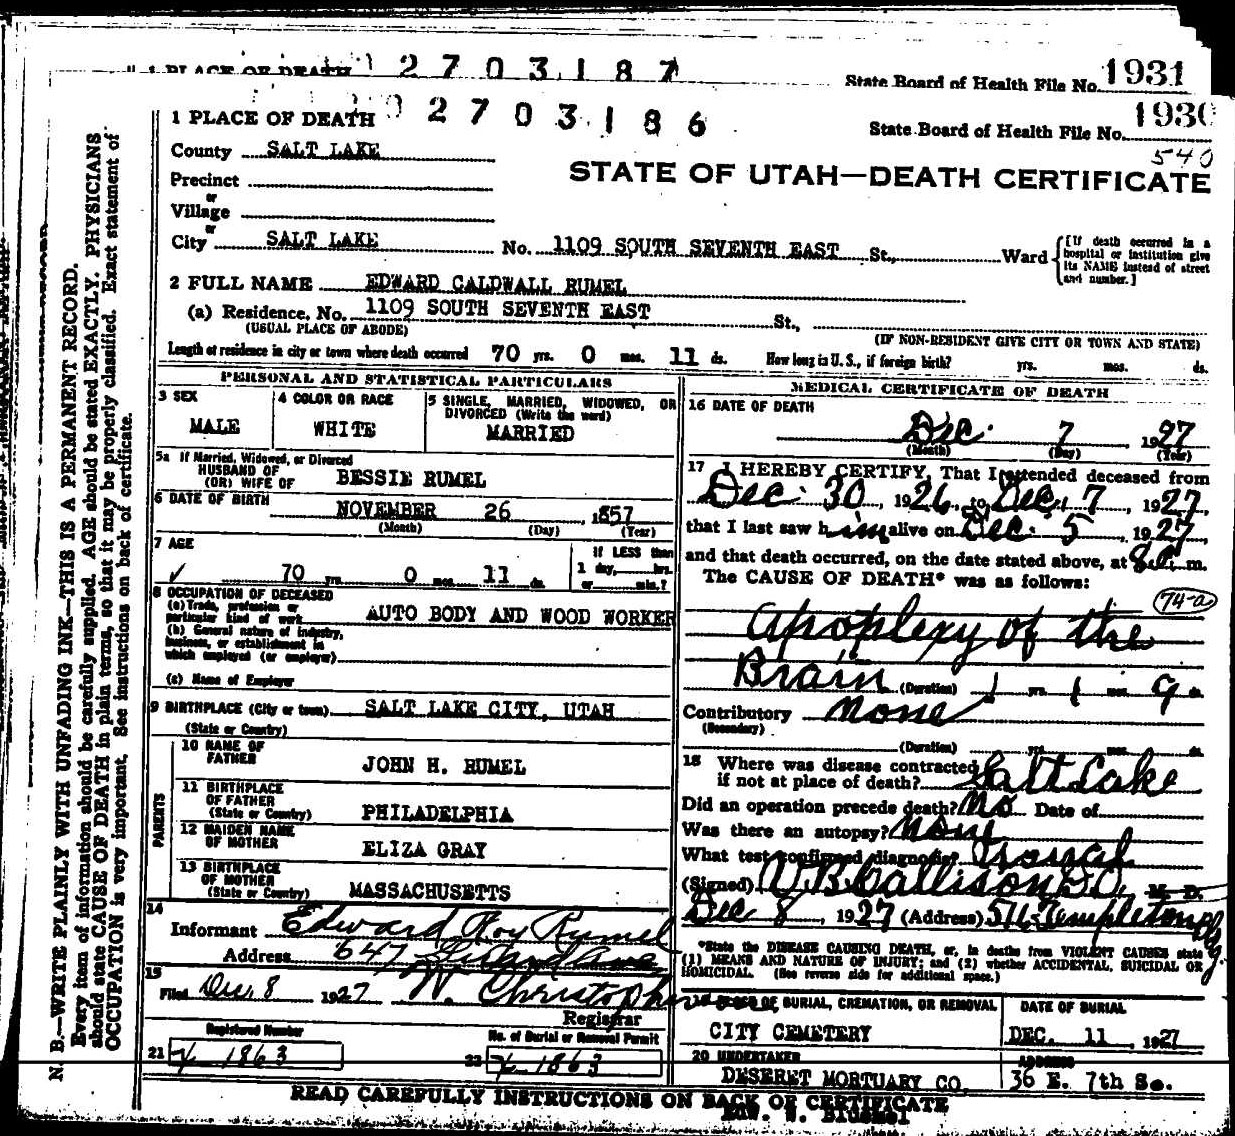 1 PLACE OF DEATH 2 7 0 3 1 8 7
State Board of Health File No. 1931
1 PLACE OF DEATH 2 7 0 3 1 8 6
State Board of Health File No. 1930
540
County SALT LAKE
STATE OF UTAH—DEATH CERTIFICATE
Precinct
or
Village
or
City SALT LAKE No. 1109 SOUTH SEVENTH EAST St., Ward
[If death occurred in a hospital or institution give its NAME instead of street and number.]
2 FULL NAME EDWARD CALDWALL RUMEL
(a) Residence. No. 1109 SOUTH SEVENTH EAST St.,
(USUAL PLACE OF ABODE) (IF NON-RESIDENT GIVE CITY OR TOWN AND STATE)
Length of residence in city or town where death occurred 70 yrs. 0 mos. 11 ds. How long in U. S., if foreign birth? yrs. mos. ds.
PERSONAL AND STATISTICAL PARTICULARS
3 SEX
MALE
4 COLOR OR RACE
WHITE
5 SINGLE, MARRIED, WIDOWED, OR
DIVORCED (Write the word)
MARRIED
5a If Married, Widowed, or Divorced
HUSBAND OF
(OR) WIFE OF BESSIE RUMEL
6 DATE OF BIRTH
NOVEMBER 26 , 1857
(Month) (Day) (Year)
7 AGE
70 yrs. 0 mos. 11 ds.
If LESS than
1 day, hrs.
or min.?
8 OCCUPATION OF DECEASED
(a) Trade, profession or
particular kind of work AUTO BODY AND WOOD WORKER
(b) General nature of industry,
business, or establishment in
which employed (or employer)
(c) Name of Employer
9 BIRTHPLACE (City or town) SALT LAKE CITY, UTAH
(State or Country)
PARENTS
10 NAME OF
FATHER JOHN H. RUMEL
11 BIRTHPLACE
OF FATHER
(State or Country) PHILADELPHIA
12 MAIDEN NAME
OF MOTHER ELIZA GRAY
13 BIRTHPLACE
OF MOTHER
(State or Country) MASSACHUSETTS
14
Informant Edward Roy Rumel
Address 647
15
Filed Dec. 8 1927 W. Christopherson
Registrar
Registered Number
21 1863
No. of Burial or Removal Permit
22 1863
MEDICAL CERTIFICATE OF DEATH
16 DATE OF DEATH
Dec. 7 , 1927
(Month) (Day) (Year)
17 I HEREBY CERTIFY, That I attended deceased from
Dec. 30, 1926, to Dec. 7, 1927,
that I last saw him alive on Dec. 5, 1927,
and that death occurred, on the date stated above, at 8 a. m.
The CAUSE OF DEATH* was as follows:
74-a
Apoplexy of the
Brain (Duration) 1 yrs. 1 mos. 9 ds.
Contributory None
(Secondary)
(Duration) yrs. mos. ds.
18 Where was disease contracted
if not at place of death? Salt Lake
Did an operation precede death? No Date of
Was there an autopsy? None
What test confirmed diagnosis?
(Signed) Callison D.O. M. D.
Dec 8, 1927 (Address) 516 Templeton Bldg
*State the DISEASE CAUSING DEATH, or, in deaths from VIOLENT CAUSES state
(1) MEANS AND NATURE OF INJURY; and (2) whether ACCIDENTAL, SUICIDAL OR
HOMICIDAL. (See reverse side for additional space.)
OF BURIAL, CREMATION, OR REMOVAL
CITY CEMETERY
DATE OF BURIAL
DEC. 11 , 1927
20 UNDERTAKER
DESERET MORTUARY CO.
ADDRESS
36 E. 7th So.
READ CAREFULLY INSTRUCTIONS ON BACK OF CERTIFICATE
N. B.—WRITE PLAINLY WITH UNFADING INK—THIS IS A PERMANENT RECORD.
Every item of information should be carefully supplied. AGE should be stated EXACTLY. PHYSICIANS
should state CAUSE OF DEATH in plain terms, so that it may be properly classified. Exact statement of
OCCUPATION is very important. See instructions on back of certificate.